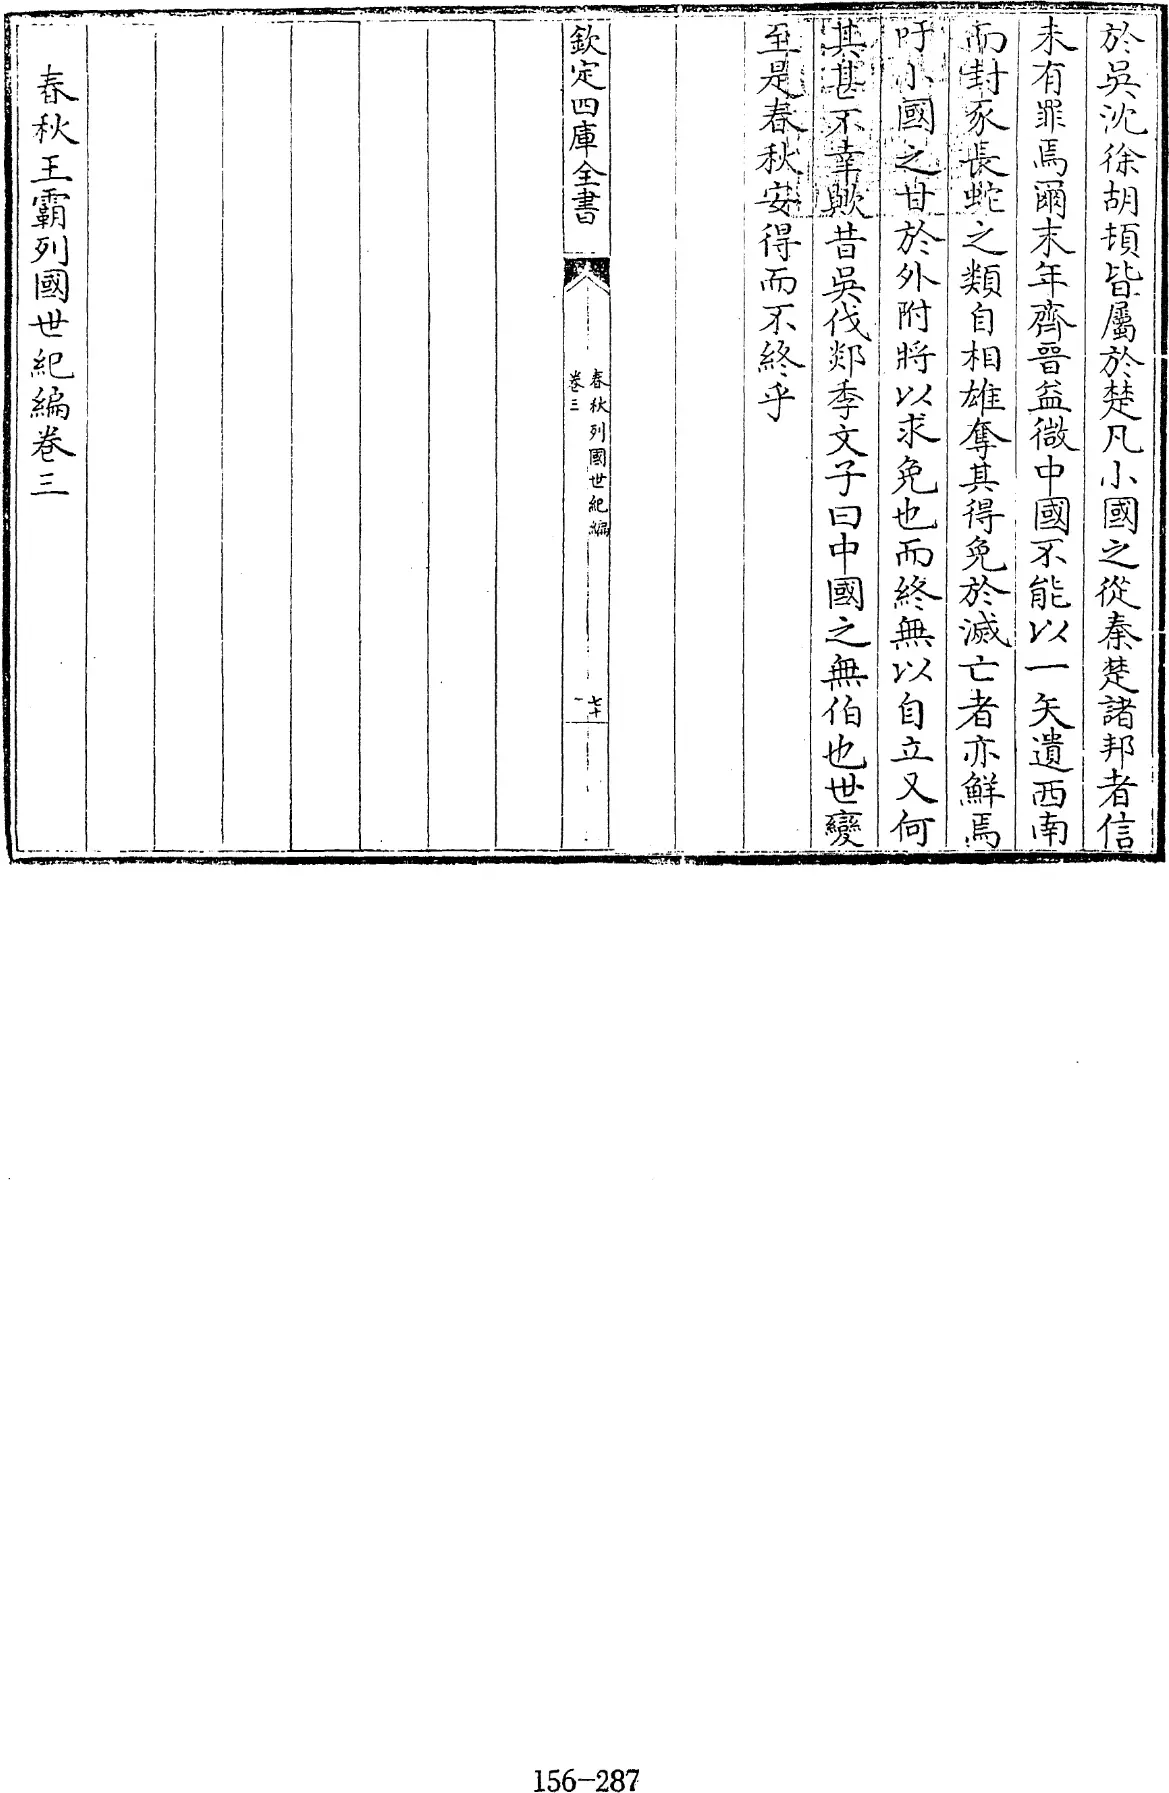 於吳沈徐胡頓皆屬於楚凡小國之從秦楚諸邦者信
未有罪焉爾末年齊晉益微中國不能以一矢遺西南
而封豕長蛇之類自相雄奪其得免於滅亡者亦鮮焉
吁小國之甘於外附將以求免也而終無以自立又何
其甚不幸歟昔吳伐郯季文子曰中國之無伯也世變
至是春秋安得而不終乎
欽定四庫全書
春秋列國世紀編
卷三
七十
一
春秋王霸列國世紀編卷三
156-287